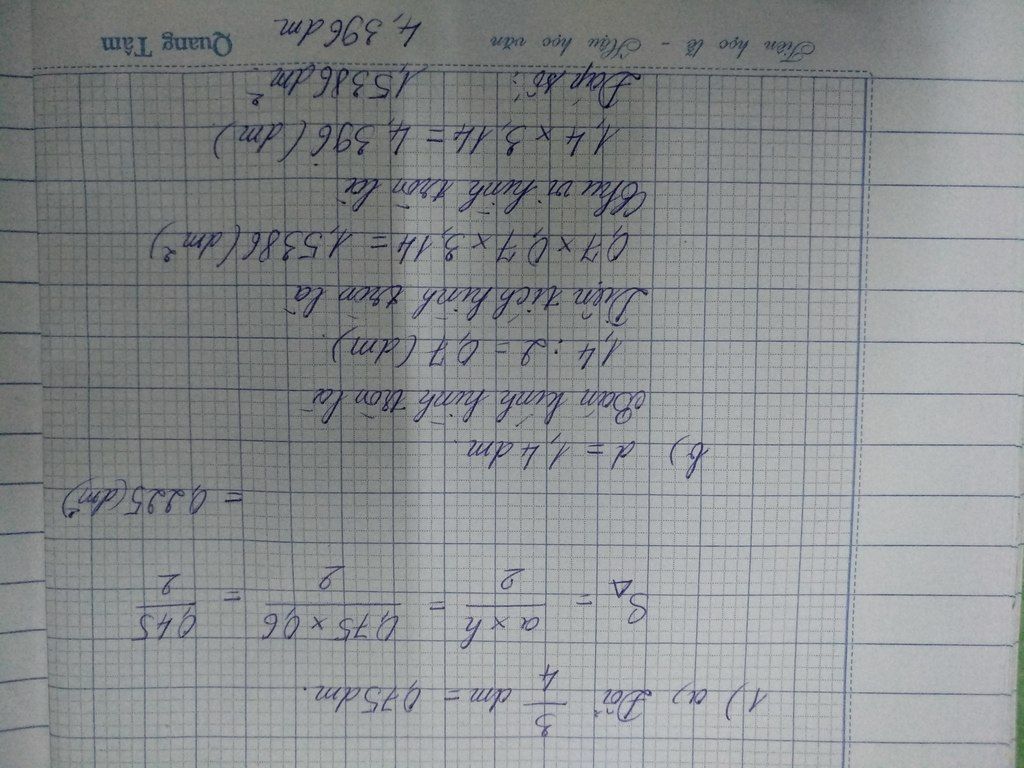 1) a) Đổi 3/4 dm = 0,75dm.
S△ = a × h / 2 = 0,75 × 0,6 / 2 = 0,45 / 2
= 0,225 (dm²)
b) d = 1,4 dm.
Bán kính hình tròn là
1,4 : 2 = 0,7 (dm).
Diện tích hình tròn là
0,7 × 0,7 × 3,14 = 1,5386 (dm²)
Chu vi hình tròn là
1,4 × 3,14 = 4,396 (dm)
Đáp số: 1,5386 dm²
4,396 dm
Tiên học lễ - Hậu học văn Quang Tâm